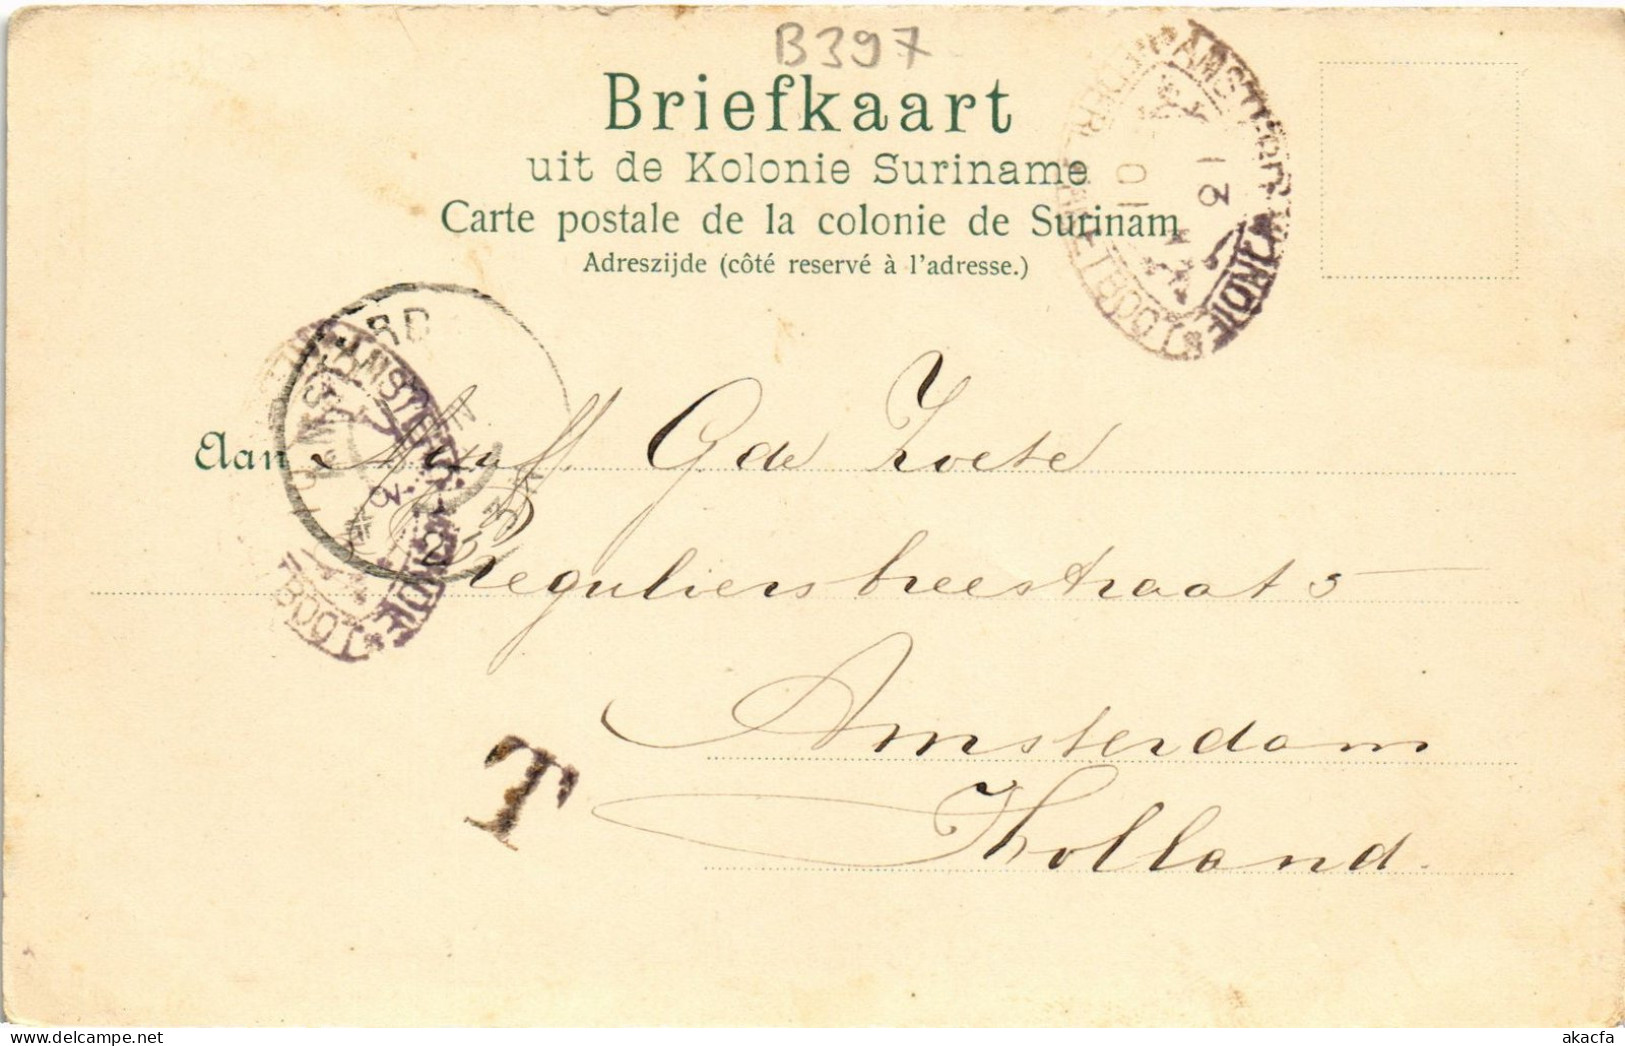 B397
Briefkaart
uit de Kolonie Suriname
Carte postale de la colonie de Surinam
Adreszijde (côté reservé à l'adresse.)
Aan G de Zoete
Reguliersbreestraat 5
Amsterdam
Holland.
T
akacfa